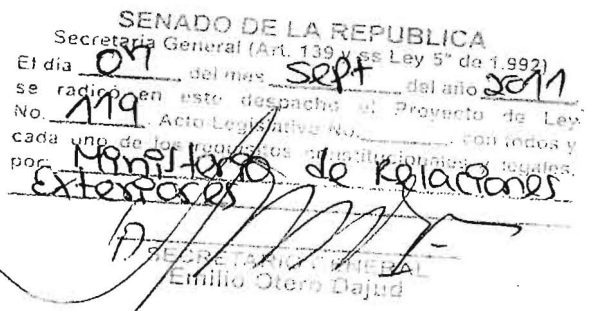 SENADO DE LA REPUBLICA
Secretaria General (Art. 139 y ss Ley 5ª de 1.992)
El dia 07 del mes Sept del año 2011
se radicó en este despacho el Proyecto de Ley
No. 119. Acto Legislativo No. , con todos y
cada uno de los requisitos constitucionales y legales,
por: Ministerio de Relaciones
Exteriores
SECRETARIO GENERAL
Emilio Otero Dajud